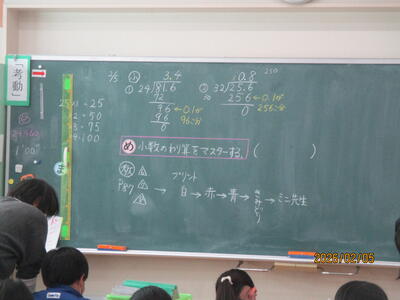 「考動」
2/5 小
① 3.4
24)81.6
72
96 ←0.1が
96 96こ分
0
② 0.8
32)25.6
25 6 ←0.1が
0 256こ分
25×1=25
×2=50
×3=75
×4=100
め 小数のわり算をマスターする。( )
P87
プリント
→ 白→赤→青→きみどり→ミニ先生
2025/02/05